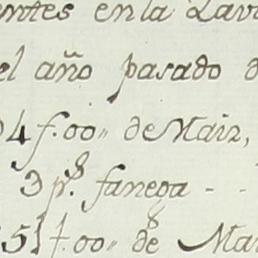 entes en la Lav
el año pasado d
04 f.00,, de Maiz,
3 p.s fanega - -
51 f.00,, de Ma